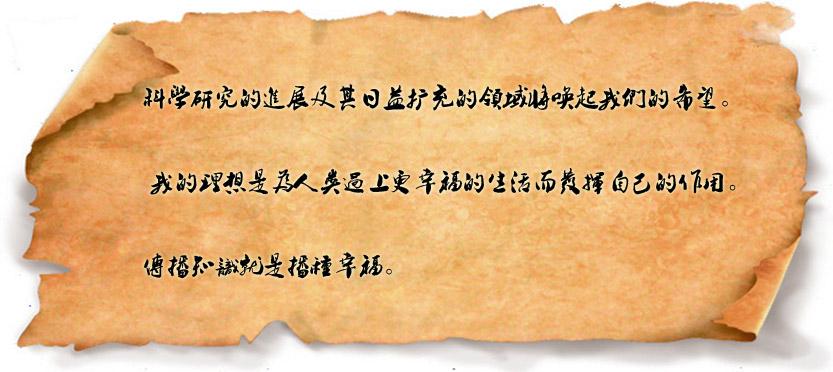 科學研究的進展及其日益扩充的領域將喚起我們的希望。
我的理想是為人类過上更幸福的生活而發揮自己的作用。
傳播知識就是播種幸福。